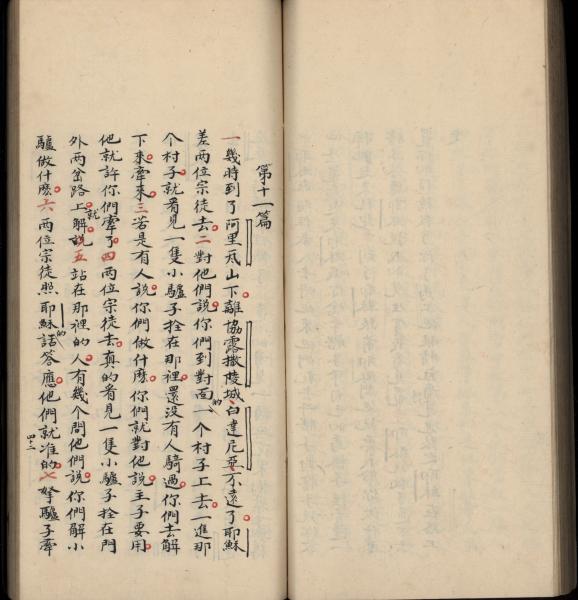 第十一篇
一幾時到了阿里瓦山下離協露撒陵城白達尼亞不遠了耶穌
差两位宗徒去二對他們說你們到對面的一个村子上去一進那
个村子就看見一隻小驢子拴在那裡還没有人騎過你們去解
下來牽來三若是有人說你們做什麽你們就對他說主子要用
他就許你們牽了四两位宗徒去真的看見一隻小驢子拴在門
外两岔路上就解說五站在那裡的人有幾个問他們說你們解小
驢做什麽六两位宗徒照耶穌的話答應他們就准的七拏驢子牽
四十二